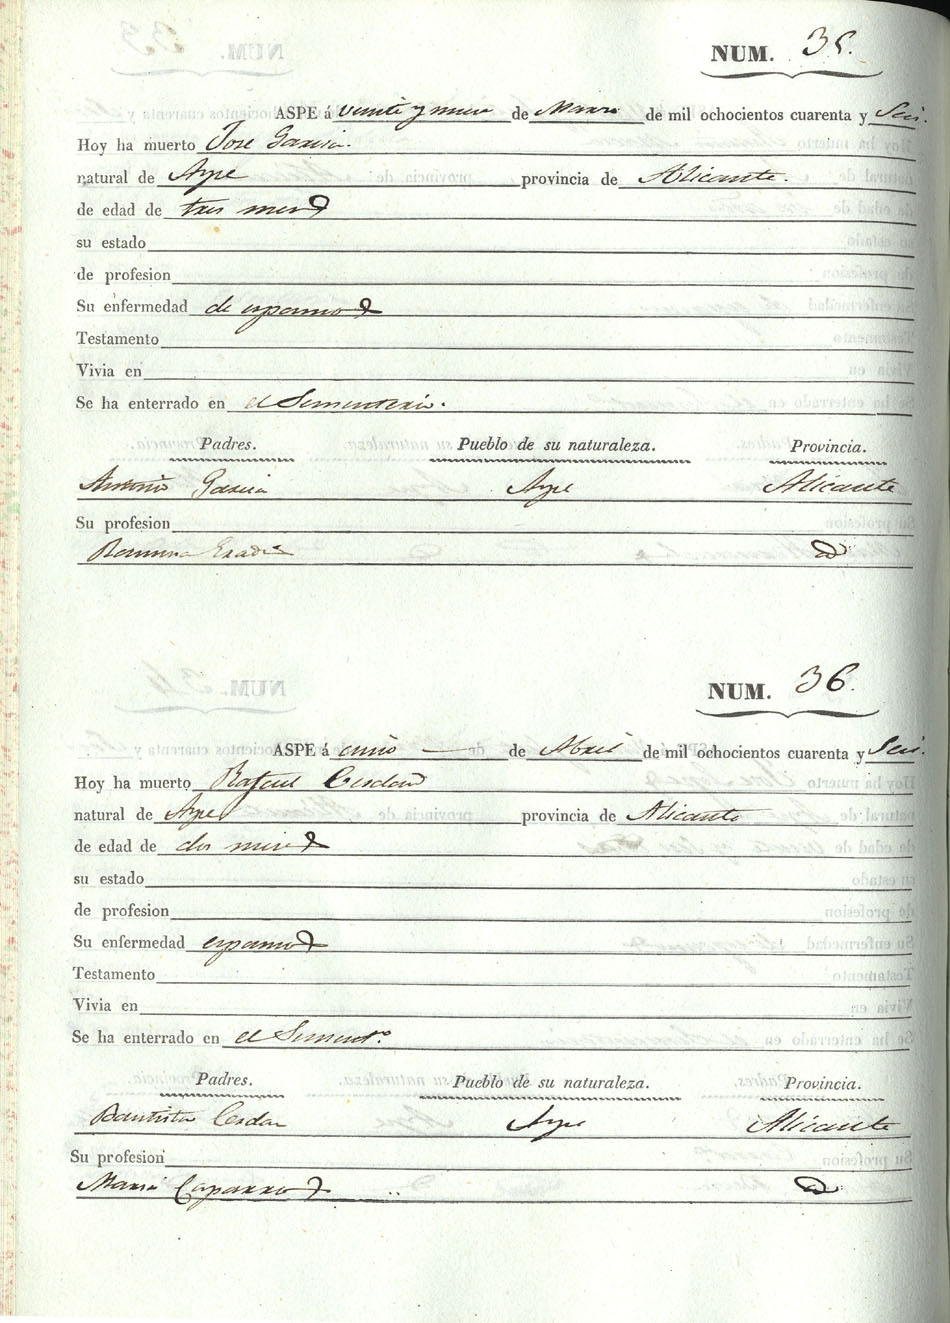 NUM. 35.
ASPE á veinte y nueve de Marzo de mil ochocientos cuarenta y Seis.
Hoy ha muerto Jose Garcia.
natural de Aspe provincia de Alicante.
de edad de tres meses
su estado
de profesion
Su enfermedad de espasmo
Testamento
Vivia en
Se ha enterrado en el Sementerio.
Padres. Pueblo de su naturaleza. Provincia.
Antonio Garcia Aspe Alicante
Su profesion
NUM. 36.
ASPE á cinco de Abril de mil ochocientos cuarenta y Seis.
Hoy ha muerto Rafael Cerdan
natural de Aspe provincia de Alicante
de edad de dos meses
su estado
de profesion
Su enfermedad espasmo
Testamento
Vivia en
Se ha enterrado en el Sement.º
Padres. Pueblo de su naturaleza. Provincia.
Bautista Cerdan Aspe Alicante
Su profesion
Maria Caparros